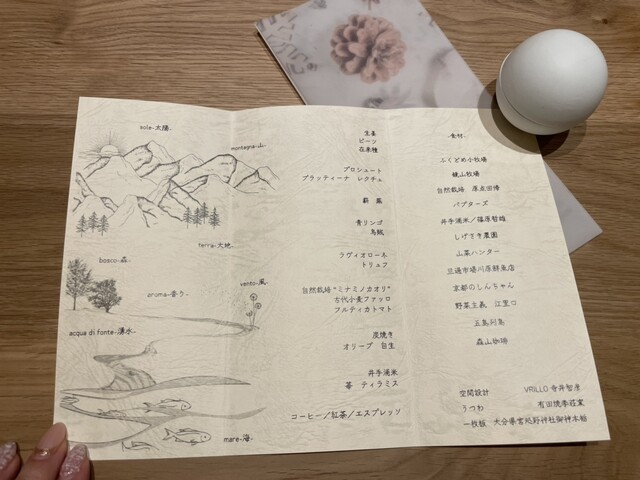 sole-太陽-
montagna-山-
terra-大地-
bosco-森-
aroma-香り-
vento-風-
acqua di fonte-湧水-
mare-海-
生姜
ビーツ
在来種
プロシュート
ブラッティーナ レクチェ
薪 薫
青リンゴ
烏賊
ラヴィオローネ
トリュフ
自然栽培 "ミナミノカオリ"
古代小麦ファッロ
フルティカトマト
炭焼き
オリーブ 自生
井手湧米
苺 ティラミス
コーヒー/紅茶/エスプレッソ
-食材-
ふくどめ小牧場
鏡山牧場
自然栽培
パプターズ
井手湧米/篠原哲雄
しげさき農園
山菜ハンター
旦過市場川原鮮魚店
京都のしんちゃん
野菜主義 辻里口
五島列島
森山珈琲
空間設計 VRILLO 寺井智彦
うつわ 有田焼李荘窯
一枚板 大分県宮処野神社御神木杉